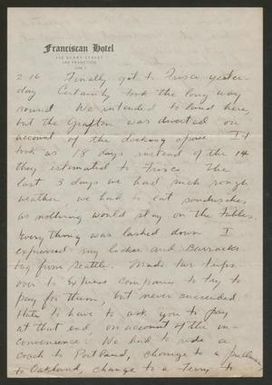 Franciscan Hotel
350 GEARY STREET
SAN FRANCISCO
2-16 Finally got to Frisco yester-
day Certainly took the long way
round We intended to land here,
but the Grafton was diverted on
account of the docking space It
took us 18 days instead of the 14
they estimated to Frisco. The
last 3 days we had such rough
weather we had to eat sandwiches,
as nothing would stay on the tables.
Everything was lashed down I
expressed my locker and Barracks
bag from Seattle. Made two trips
over to Express companies to try to
pay for them, but never succeeded
Hate to have to ask you to pay
at that end, on account of the in-
convenience. We had to ride a
coach to Portland, change to a pullman
to Oakland, change to a ferry to